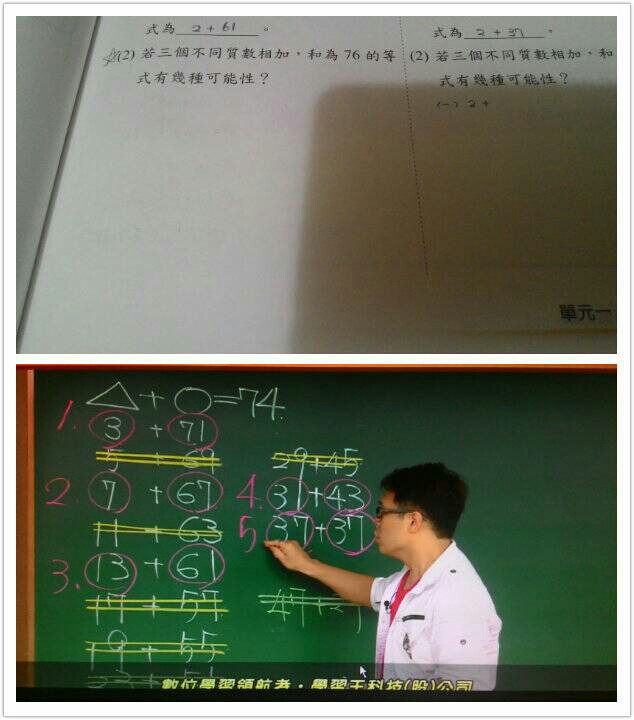 式為 2 + 61 。
(2) 若三個不同質數相加，和為 76 的等
式有幾種可能性？
式為 2 + 37 。
(2) 若三個不同質數相加，和
式有幾種可能性？
(一) 2 +
單元一
△ + ○ = 74.
1. 3 + 71
5 + 69
2. 7 + 67
11 + 63
3. 13 + 61
17 + 57
19 + 55
29 + 45
4. 31 + 43
5 37 + 37
數位學習領航者・學習王科技(股)公司